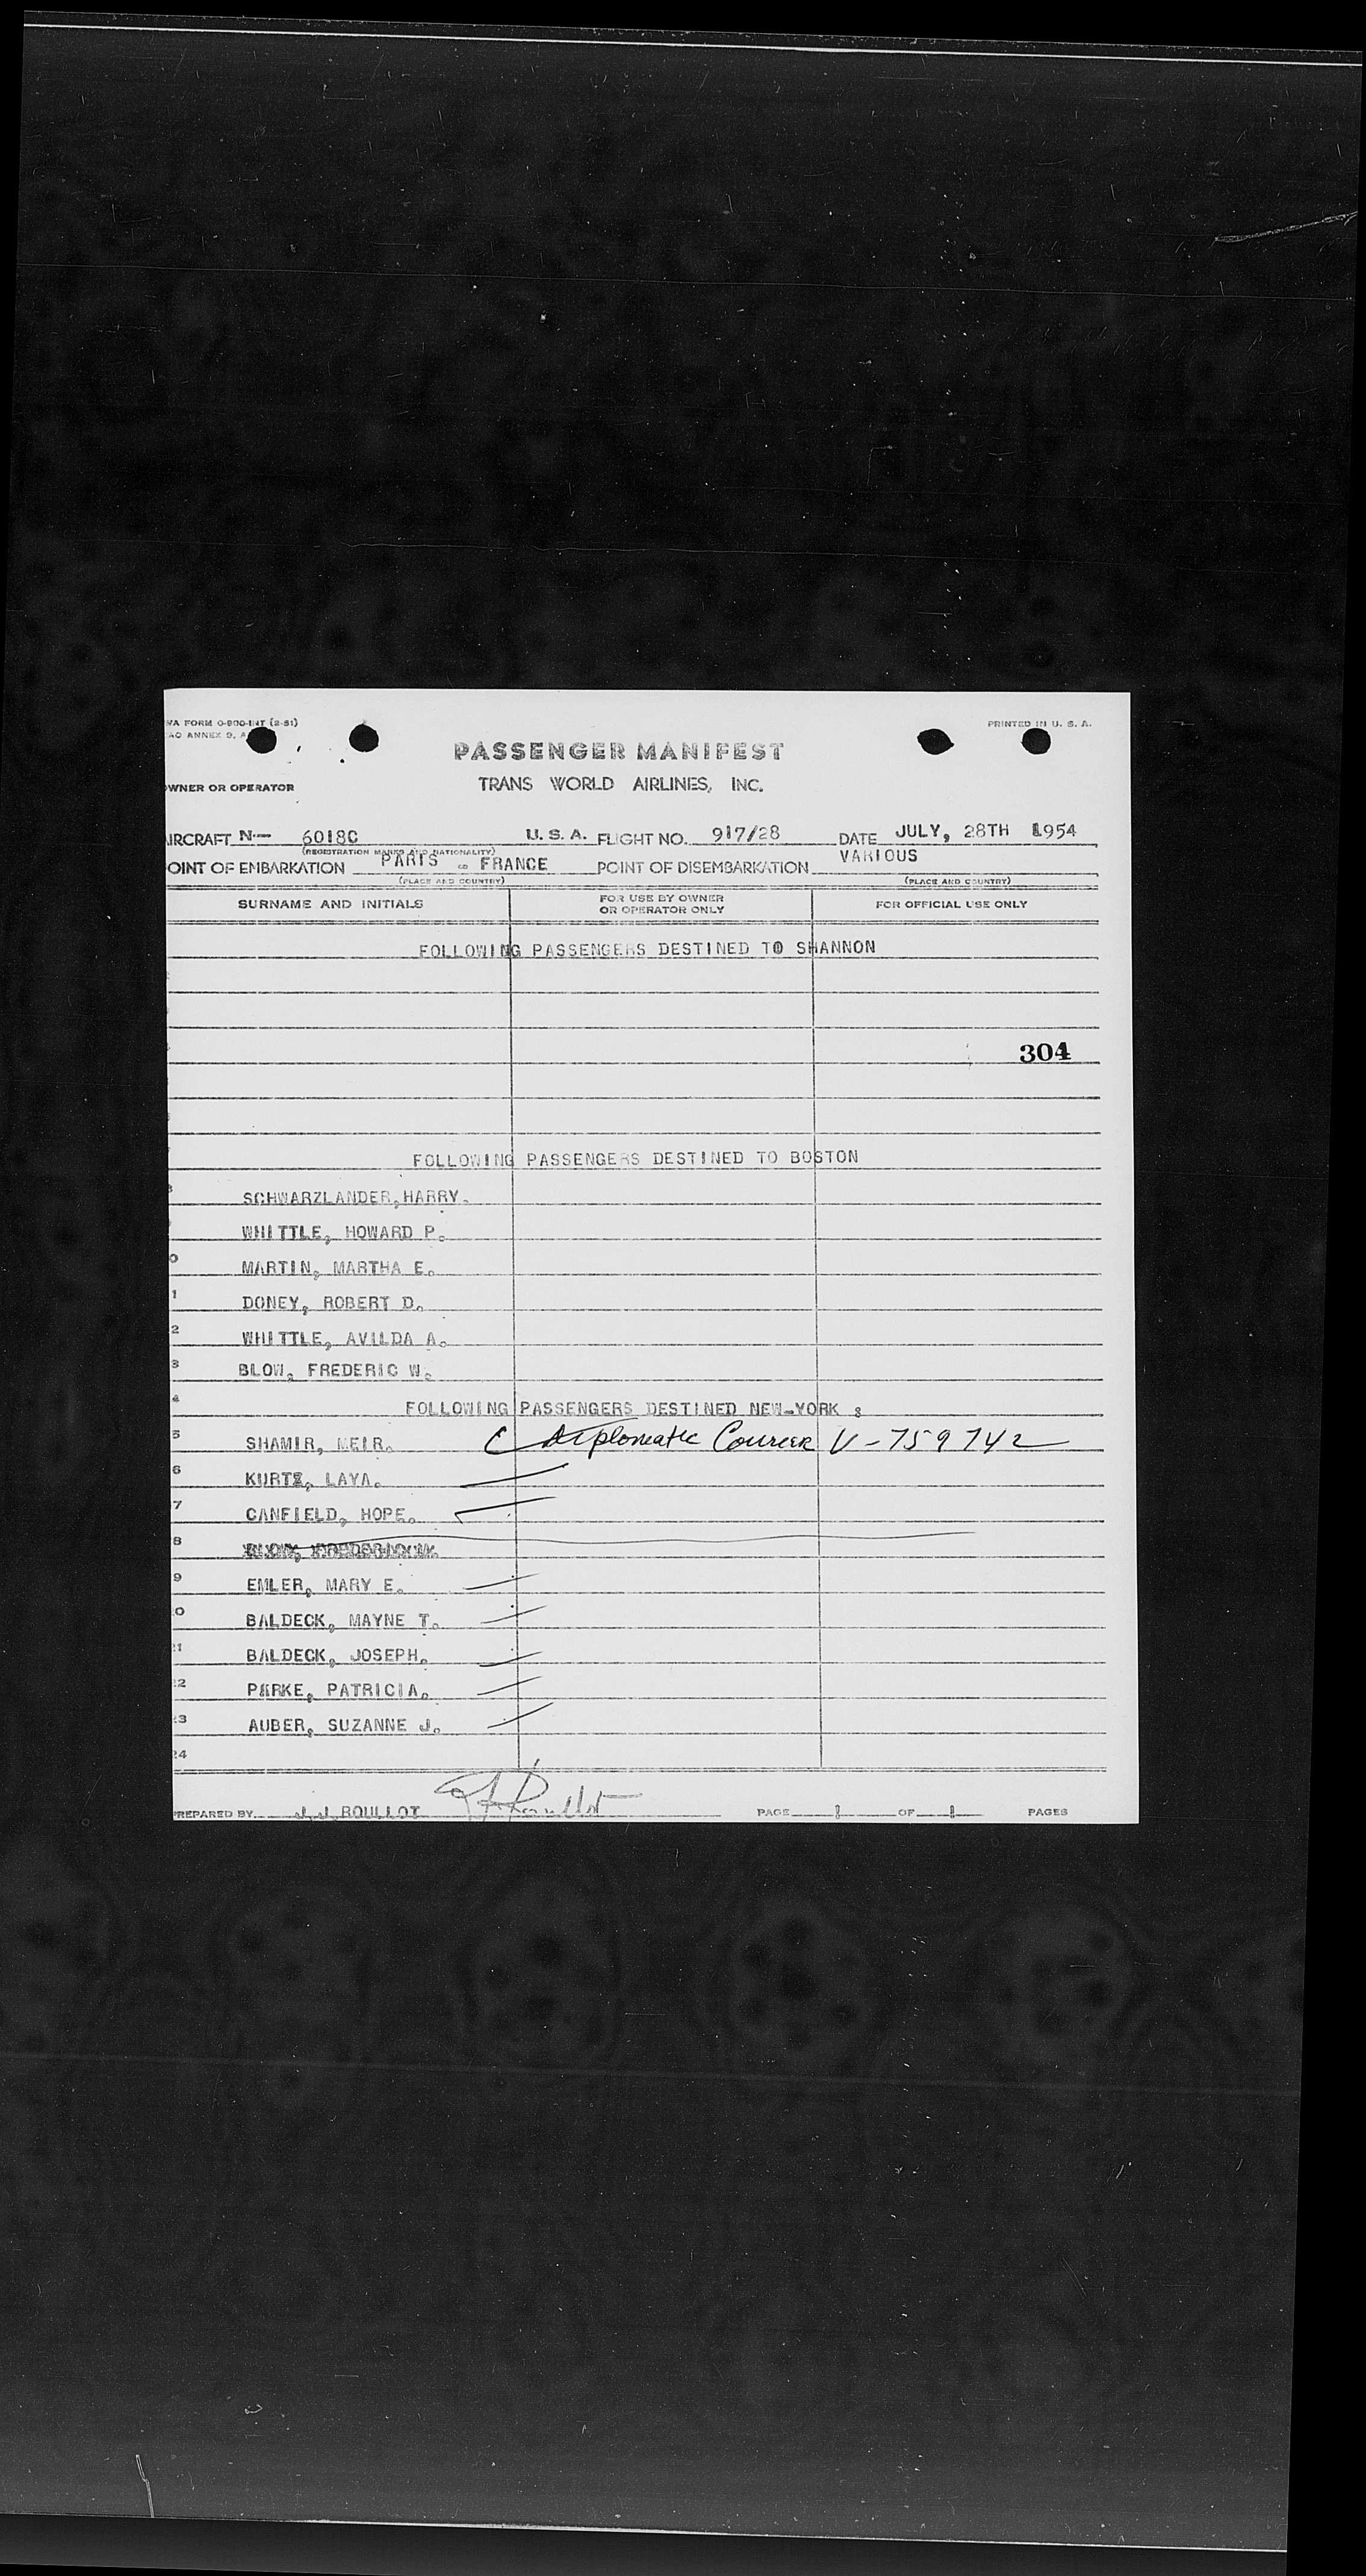 WA FORM O-800-INT (2-51)
PRINTED IN U. S. A.
AO ANNEX 9, A
PASSENGER MANIFEST
WNER OR OPERATOR
TRANS WORLD AIRLINES, INC.
IRCRAFT N— 6018C U. S. A. FLIGHT NO. 917/28 DATE JULY, 28TH 1954
(REGISTRATION MARKS AND NATIONALITY)
OINT OF EMBARKATION PARIS - FRANCE POINT OF DISEMBARKATION VARIOUS
(PLACE AND COUNTRY) (PLACE AND COUNTRY)
SURNAME AND INITIALS FOR USE BY OWNER OR OPERATOR ONLY FOR OFFICIAL USE ONLY
FOLLOWING PASSENGERS DESTINED TO SHANNON
304
FOLLOWING PASSENGERS DESTINED TO BOSTON
SCHWARZLANDER, HARRY.
WHITTLE, HOWARD P.
0 MARTIN, MARTHA E.
1 DONEY, ROBERT D.
2 WHITTLE, AVILDA A.
3 BLOW, FREDERIC W.
4 FOLLOWING PASSENGERS DESTINED NEW-YORK :
5 SHAMIR, MEIR. C Diplomatic Courier V-759742
6 KURTZ, LAYA.
7 CANFIELD, HOPE.
8
9 EMLER, MARY E.
0 BALDECK, MAYNE T.
21 BALDECK, JOSEPH.
22 PARKE, PATRICIA.
23 AUBER, SUZANNE J.
24
PREPARED BY J. J. ROULLOT PAGE 1 OF 1 PAGES